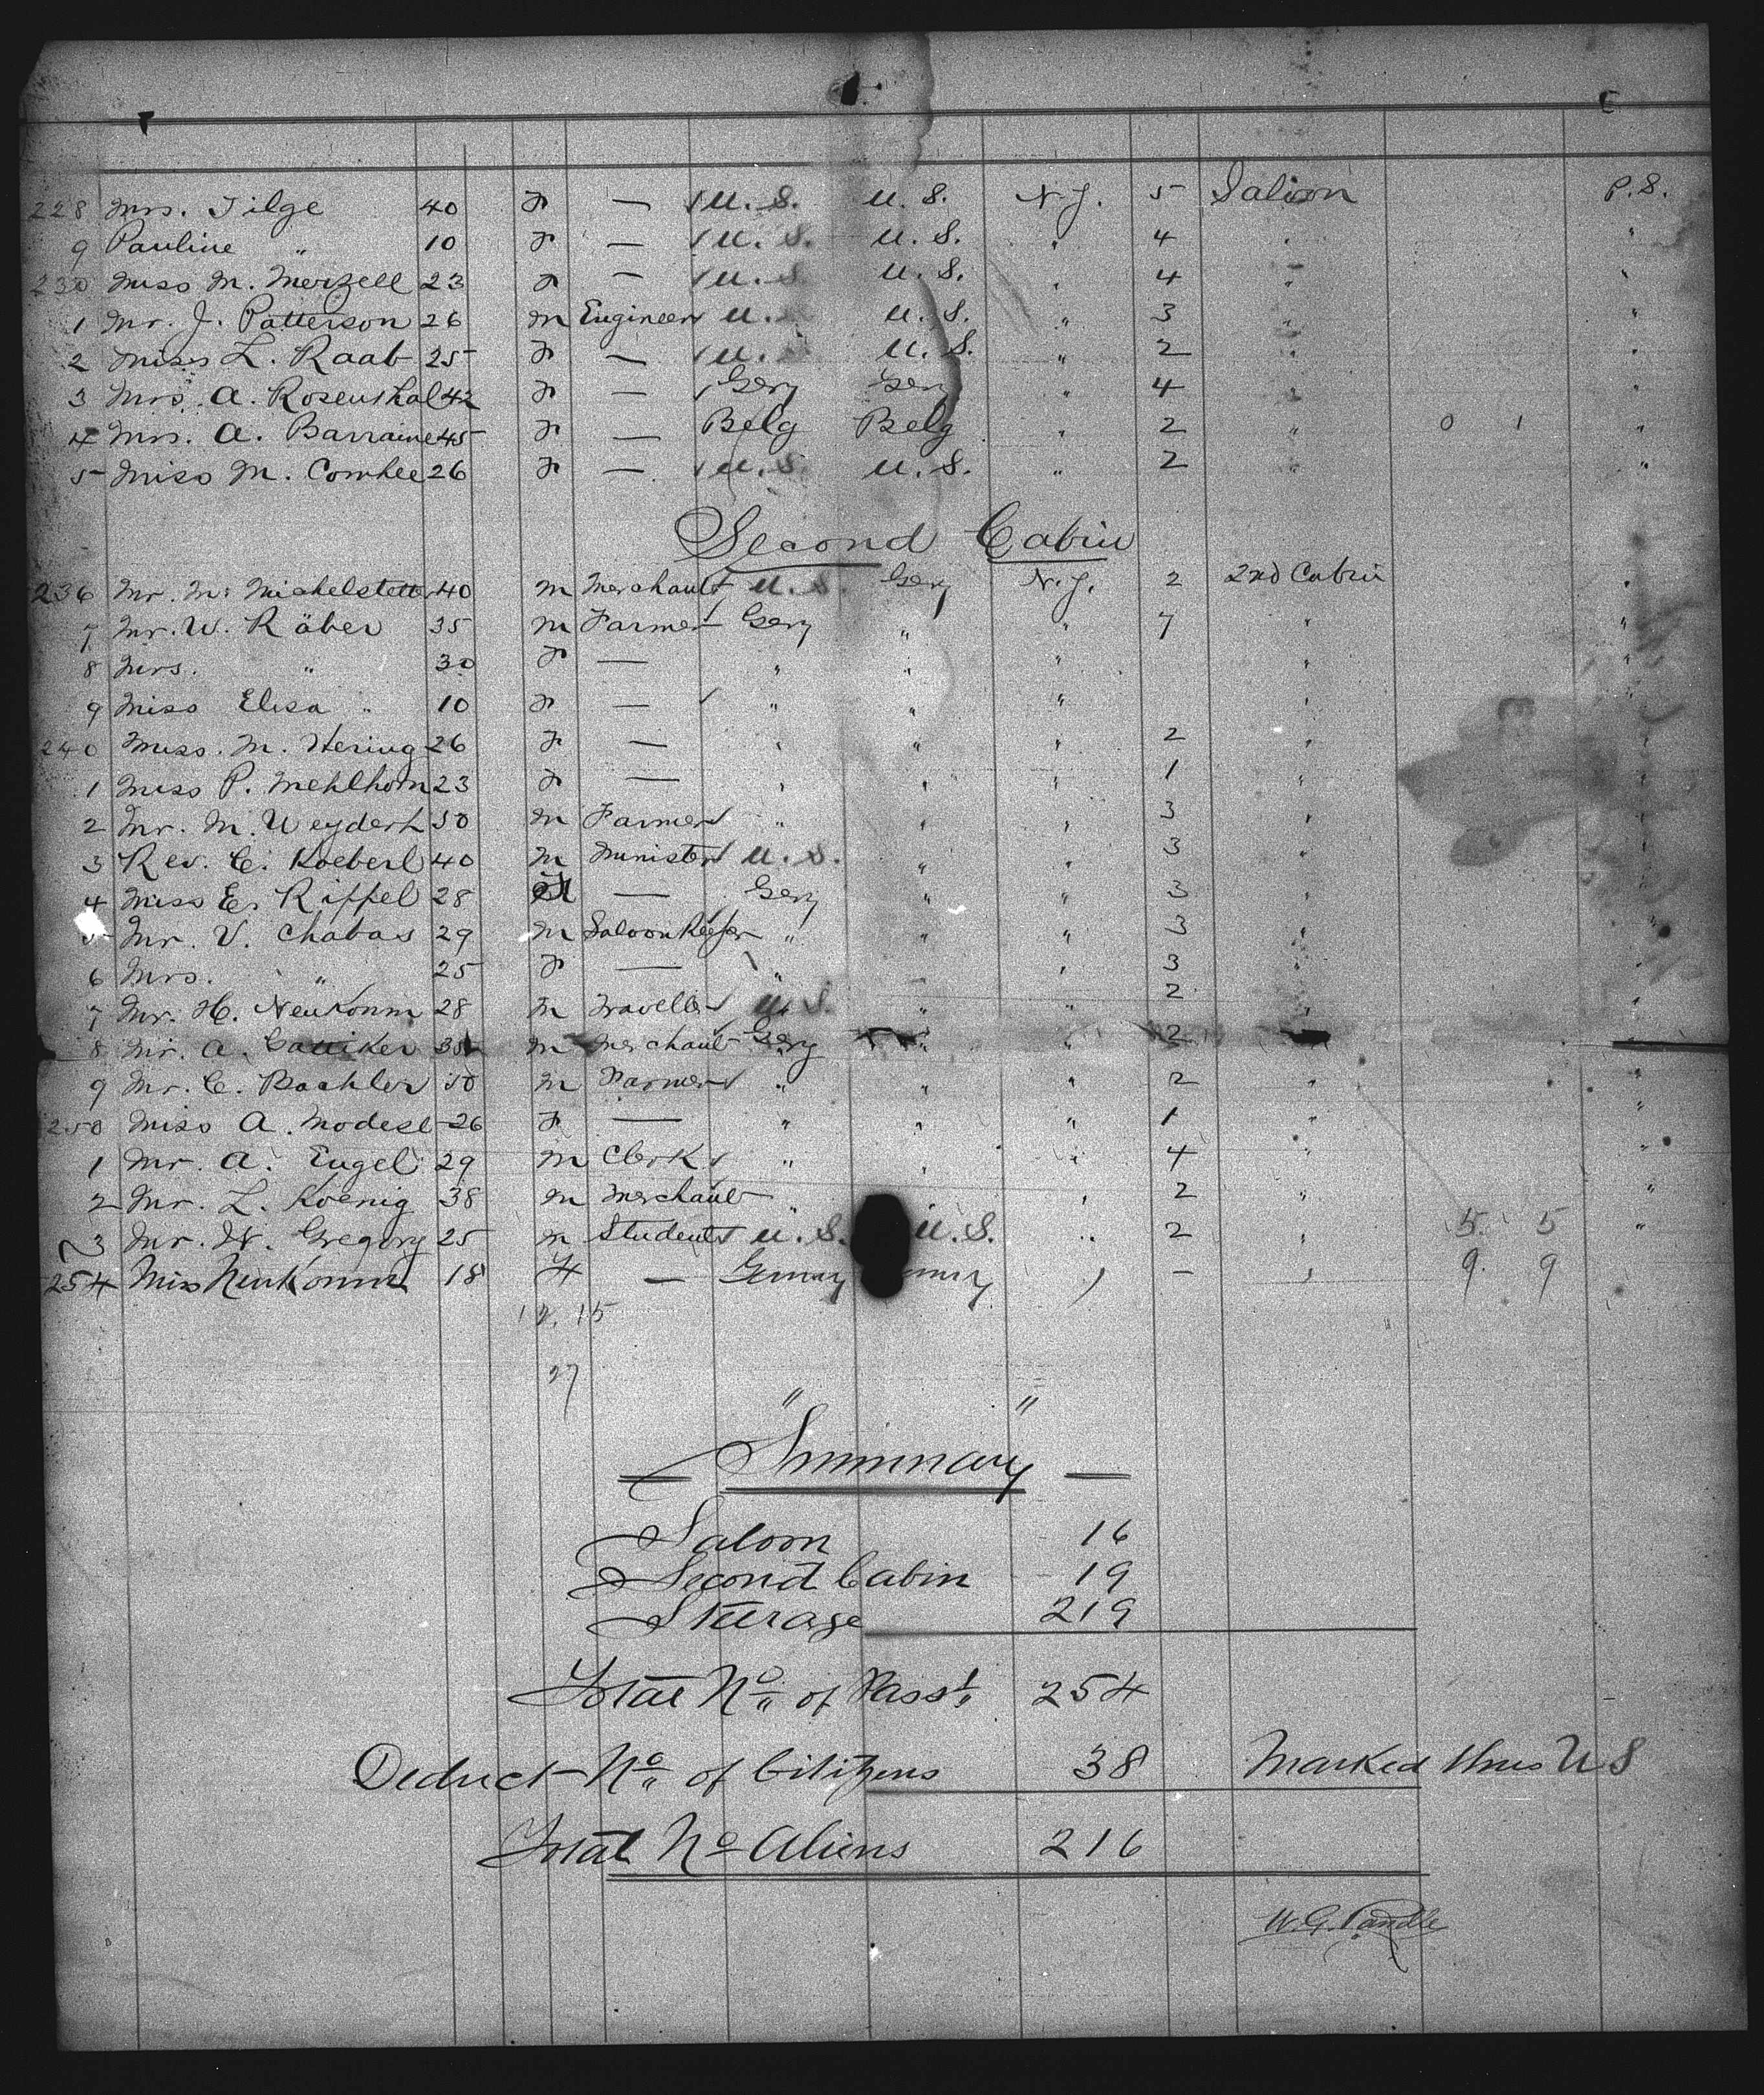 228 Mrs. Tilge 40 F — U.S. U.S. N.J. 5 Saloon P.S.
9 Pauline " 10 F — U.S. U.S. " 4 " "
230 Miss M. Merzell 23 F — U.S. U.S. " 4 " "
1 Mr. J. Patterson 26 M Engineer U. U.S. " 3 " "
2 Miss L. Raab 25 F — U. U.S. " 2 " "
3 Mrs. A. Rosenthal 42 F — Gery Gery " 4 " "
4 Mrs. A. Barraine 45 F — Belg Belg " 2 " 0 1 "
5 Miss M. Comhee 26 F — U.S. U.S. " 2 " "
Second Cabin
236 Mr. M. Michelstetter 40 M Merchant U.S. Gery N.J. 2 2nd Cabin "
7 Mr. W. Räber 35 M Farmer Gery " " 7 " "
8 Mrs. " 30 F — " " " " "
9 Miss Elisa " 10 F — " " " " "
240 Miss. M. Hering 26 F — " " " 2 " "
1 Miss P. Mehlhorn 23 F — " " " 1 " "
2 Mr. M. Weydert 50 M Farmer " " " 3 " "
3 Rev. C. Koeberl 40 M Minister U.S. " " 3 " "
4 Miss E. Riffel 28 F — Gery " " 3 " "
5 Mr. V. Chabas 29 M Saloon Keeper " " " 3 " "
6 Mrs. " 25 F — " " " 3 " "
7 Mr. H. Neukomm 28 M Traveller U.S. " " 2 " "
8 Mr. A. Gattiker 35 M Merchant Gery " " 2 "
9 Mr. C. Bachler 50 M Farmer " " " 2 " "
250 Miss A. Modesl 26 F — " " " 1 " "
1 Mr. A. Engel 29 M Clerk " " " 4 " "
2 Mr. L. Koenig 38 M Merchant " " 2 " "
3 Mr. W. Gregory 25 M Student U.S. U.S. " 2 " 5. 5 "
254 Miss Neukomm 18 F — Germny rmny " — " 9. 9
12. 15
27
" "
— Summary —
Saloon 16
Second Cabin 19
Steerage 219
Total No. of Passs. 254
Deduct No. of Citizens 38 Marked thus U S
Total No Aliens 216
W.G. Randle